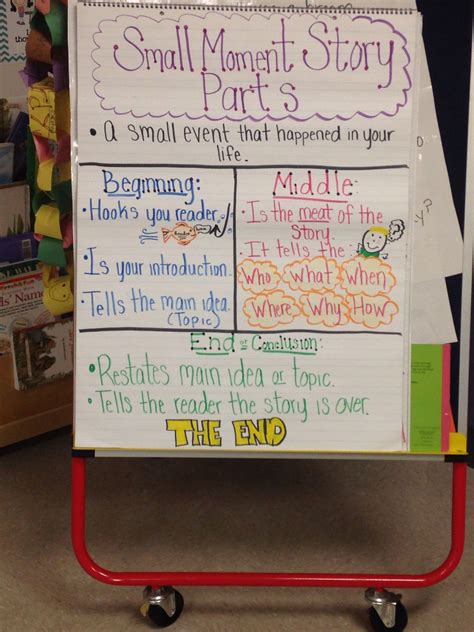 Small Moment Story
Parts
• A small event that happened in your
life.
Beginning:
• Hooks you reader.
• Is your introduction.
• Tells the main idea.
(Topic)
Middle:
• Is the meat of the
story.
• It tells the:
Who What When
Where Why How
End or Conclusion:
• Restates main idea or topic.
• Tells the reader the story is over.
THE END